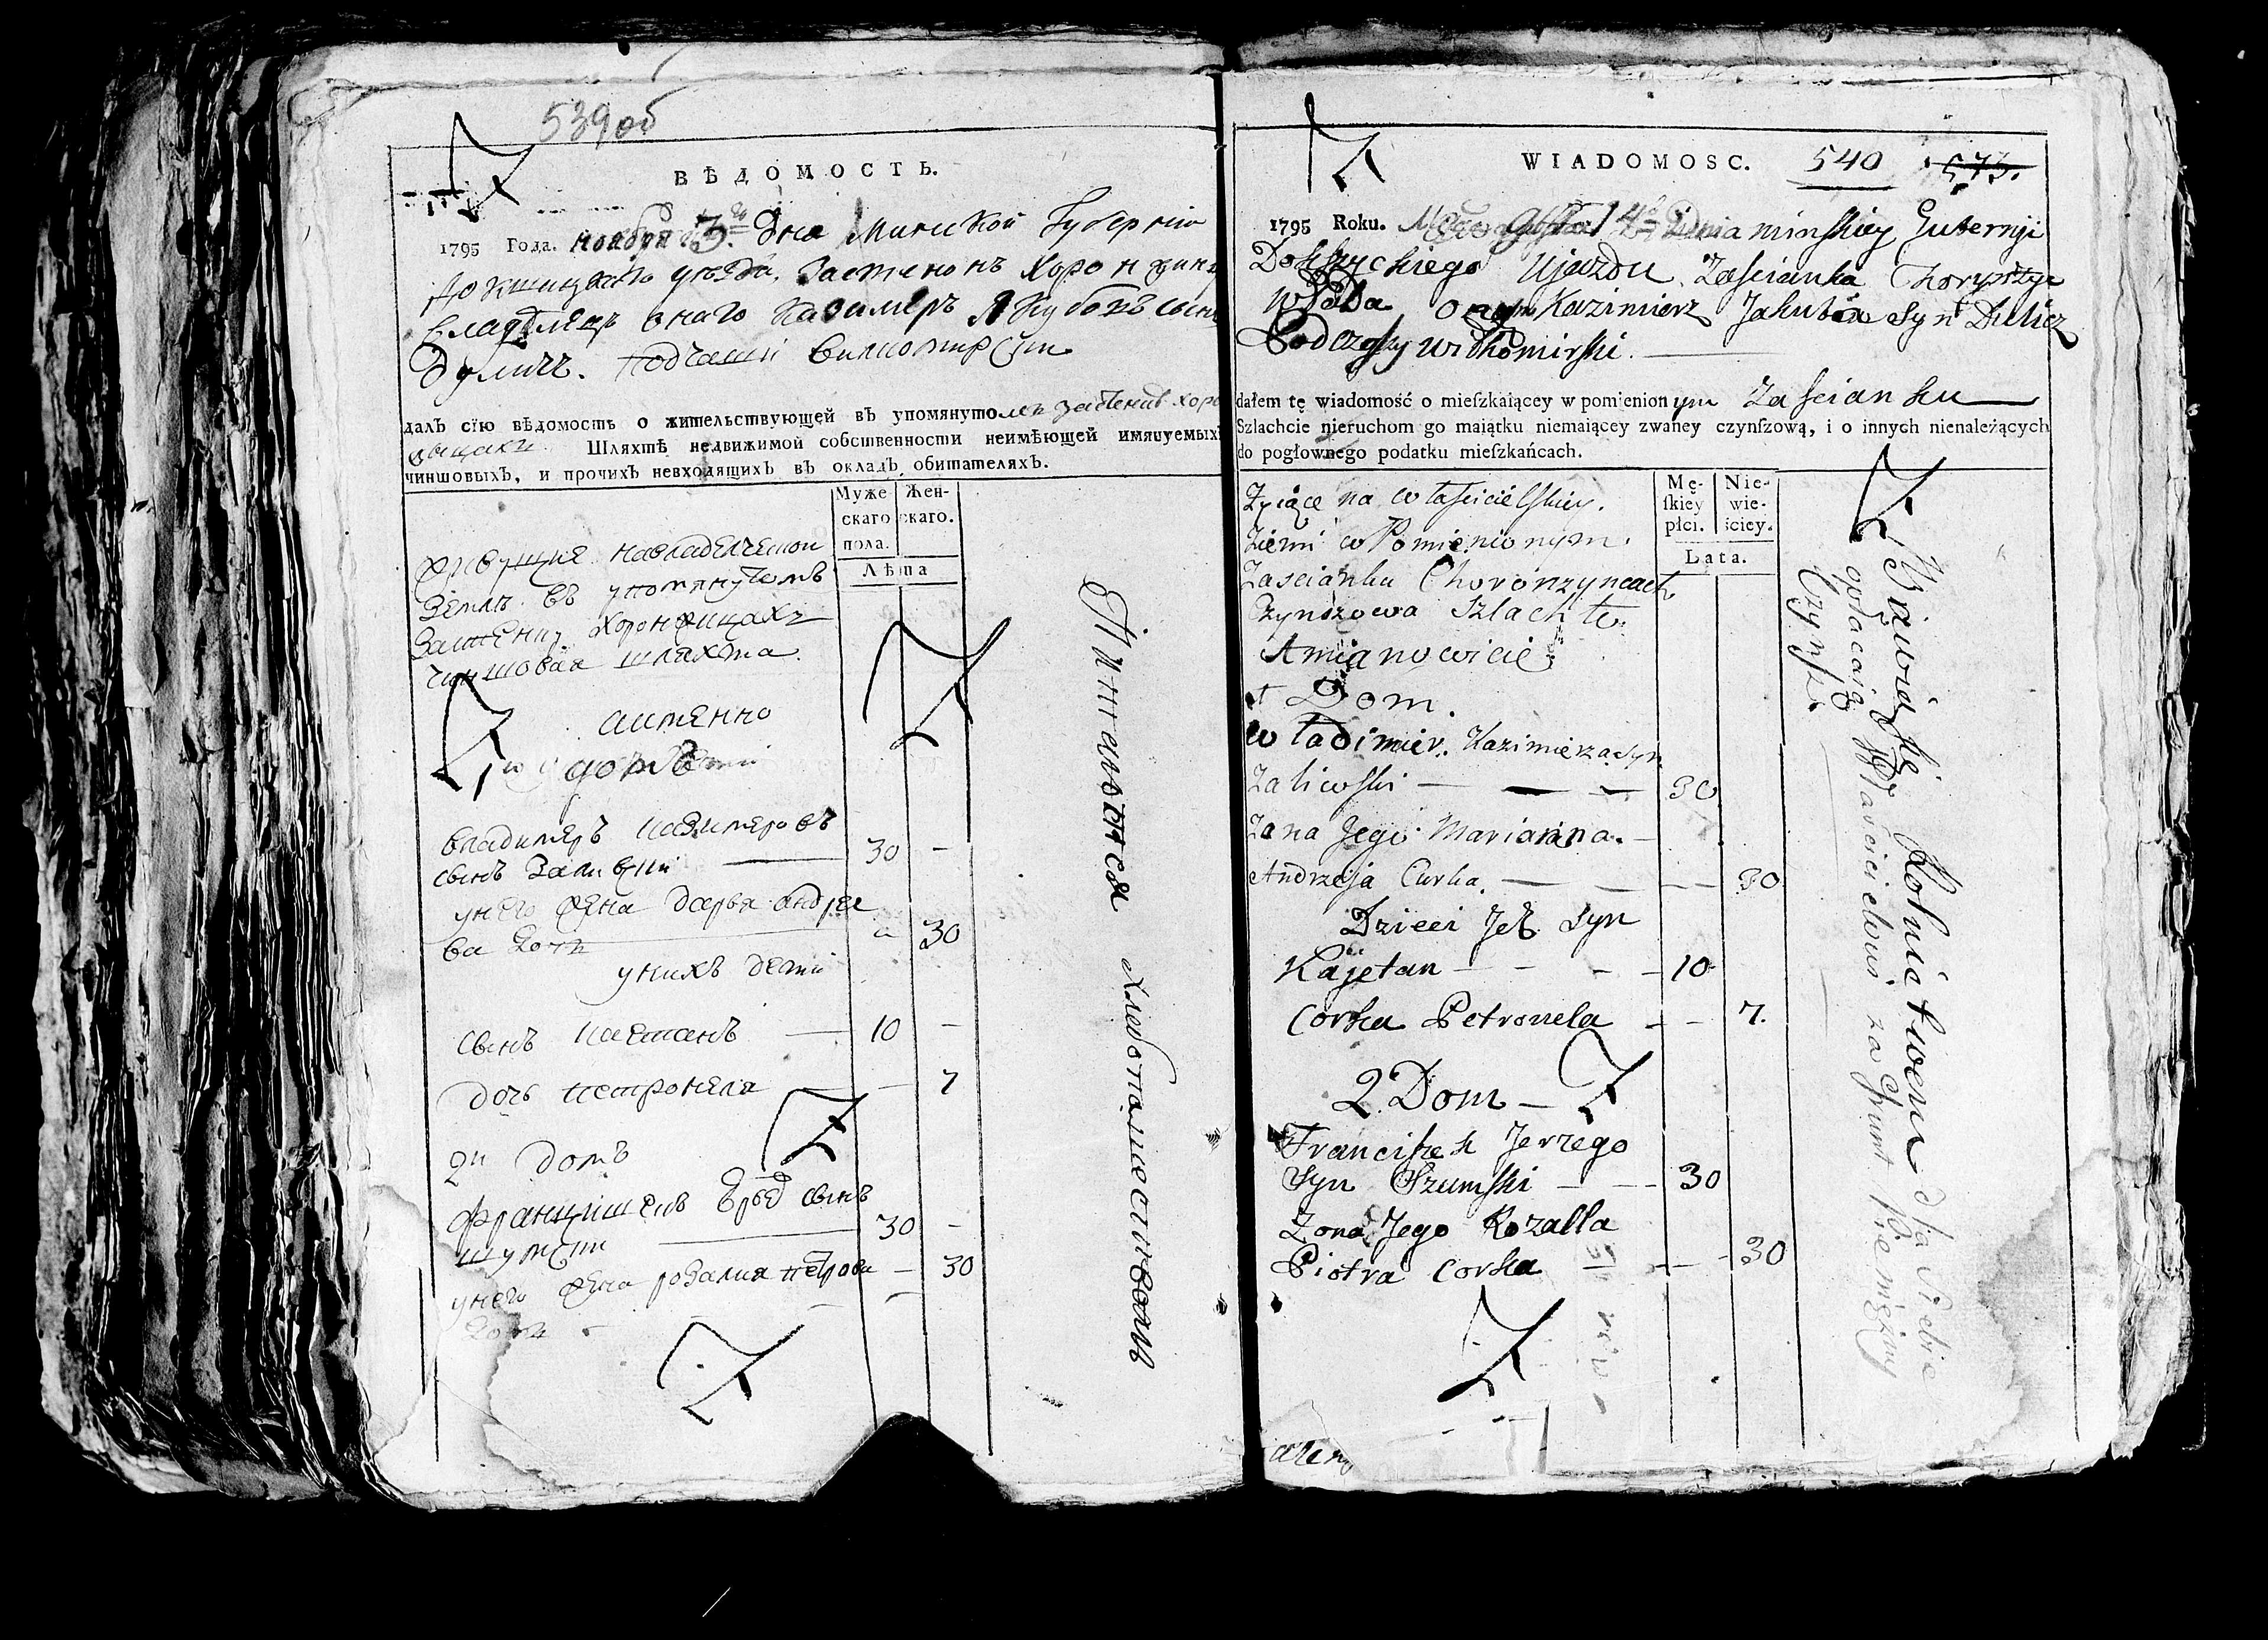 539 об
ВѢДОМОСТЬ.
1795 Года. ноября 3. дня Минской Губерніи
Докшицкаго уезда, Застенокъ Хоронжицъ
Владѣлецъ онаго Казимеръ Якубовъ сынъ
Дуличъ. подчаши вилкомирски
далъ сїю вѣдомость о жительствующей въ упомянутомъ застенкѣ Хоро
нжицахъ Шляхтѣ недвижимой собственности неимѣющей имянуемыхъ
чиншовыхъ, и прочихъ невходящихъ въ окладъ обитателяхъ.
Муже
скаго
пола.
Жен-
скаго.
Лѣта
живущие навладелческой
Земле въ упомянутомъ
Застенку Хоронжицахъ
чиншовая шляхта.
аименно
домъ
владимеръ казимеровъ
сынъ Заливски 30 —
унего жена дарья андрее
ва дочь 30
унихъ дети
сынъ каетанъ — 10 —
дочь петронеля — 7
2й домъ
Францишекъ Еръя сынъ
шумски 30 —
унего жена розалия петрова — 30
дочь
Занимаются хлебопашествомъ
WIADOMOSC. 540 573.
1795 Roku. 14 Dnia minskiey Gubernji
Dokszyckiego Ujazdu Zascianka Chorąžyc
Kazimierz Jakuba syn Dulicz
Podczaszy Wilkomirski.
dałem tę wiadomość o mieſzkaiącey w pomienionym Zascianku
Szlachcie nieruchom go maiątku niemaiącey zwaney czynſzową, i o innych nienależących
do pogłownego podatku mieſzkańcach.
Mę-
ſkiey
płci.
Nie-
wie-
ściey.
Lata.
Zyiące na własicielskiey.
Ziemi w Pomienionym.
Zascianku Choronzyncach
Czynszowa Szlachta
Amianowicie
1 Dom.
Wladimier. Kazimierza Syn
Zaliwski — — — 30
Zona Jego Marianna. —
Andrzeja Curka. — — — 30
Dzieci Jch Syn
Kajetan — — — 10
Corka Petronela — — 7.
2. Dom —
Franciszek Jerzego
Syn Szumski — — 30
Zona Jego Rozalla
Piotra Corka — — 30
Bawią się Rolnictwem dla Siebie
opłacaią Właścicielowi za Grunt Pieniężny
Czynsz.